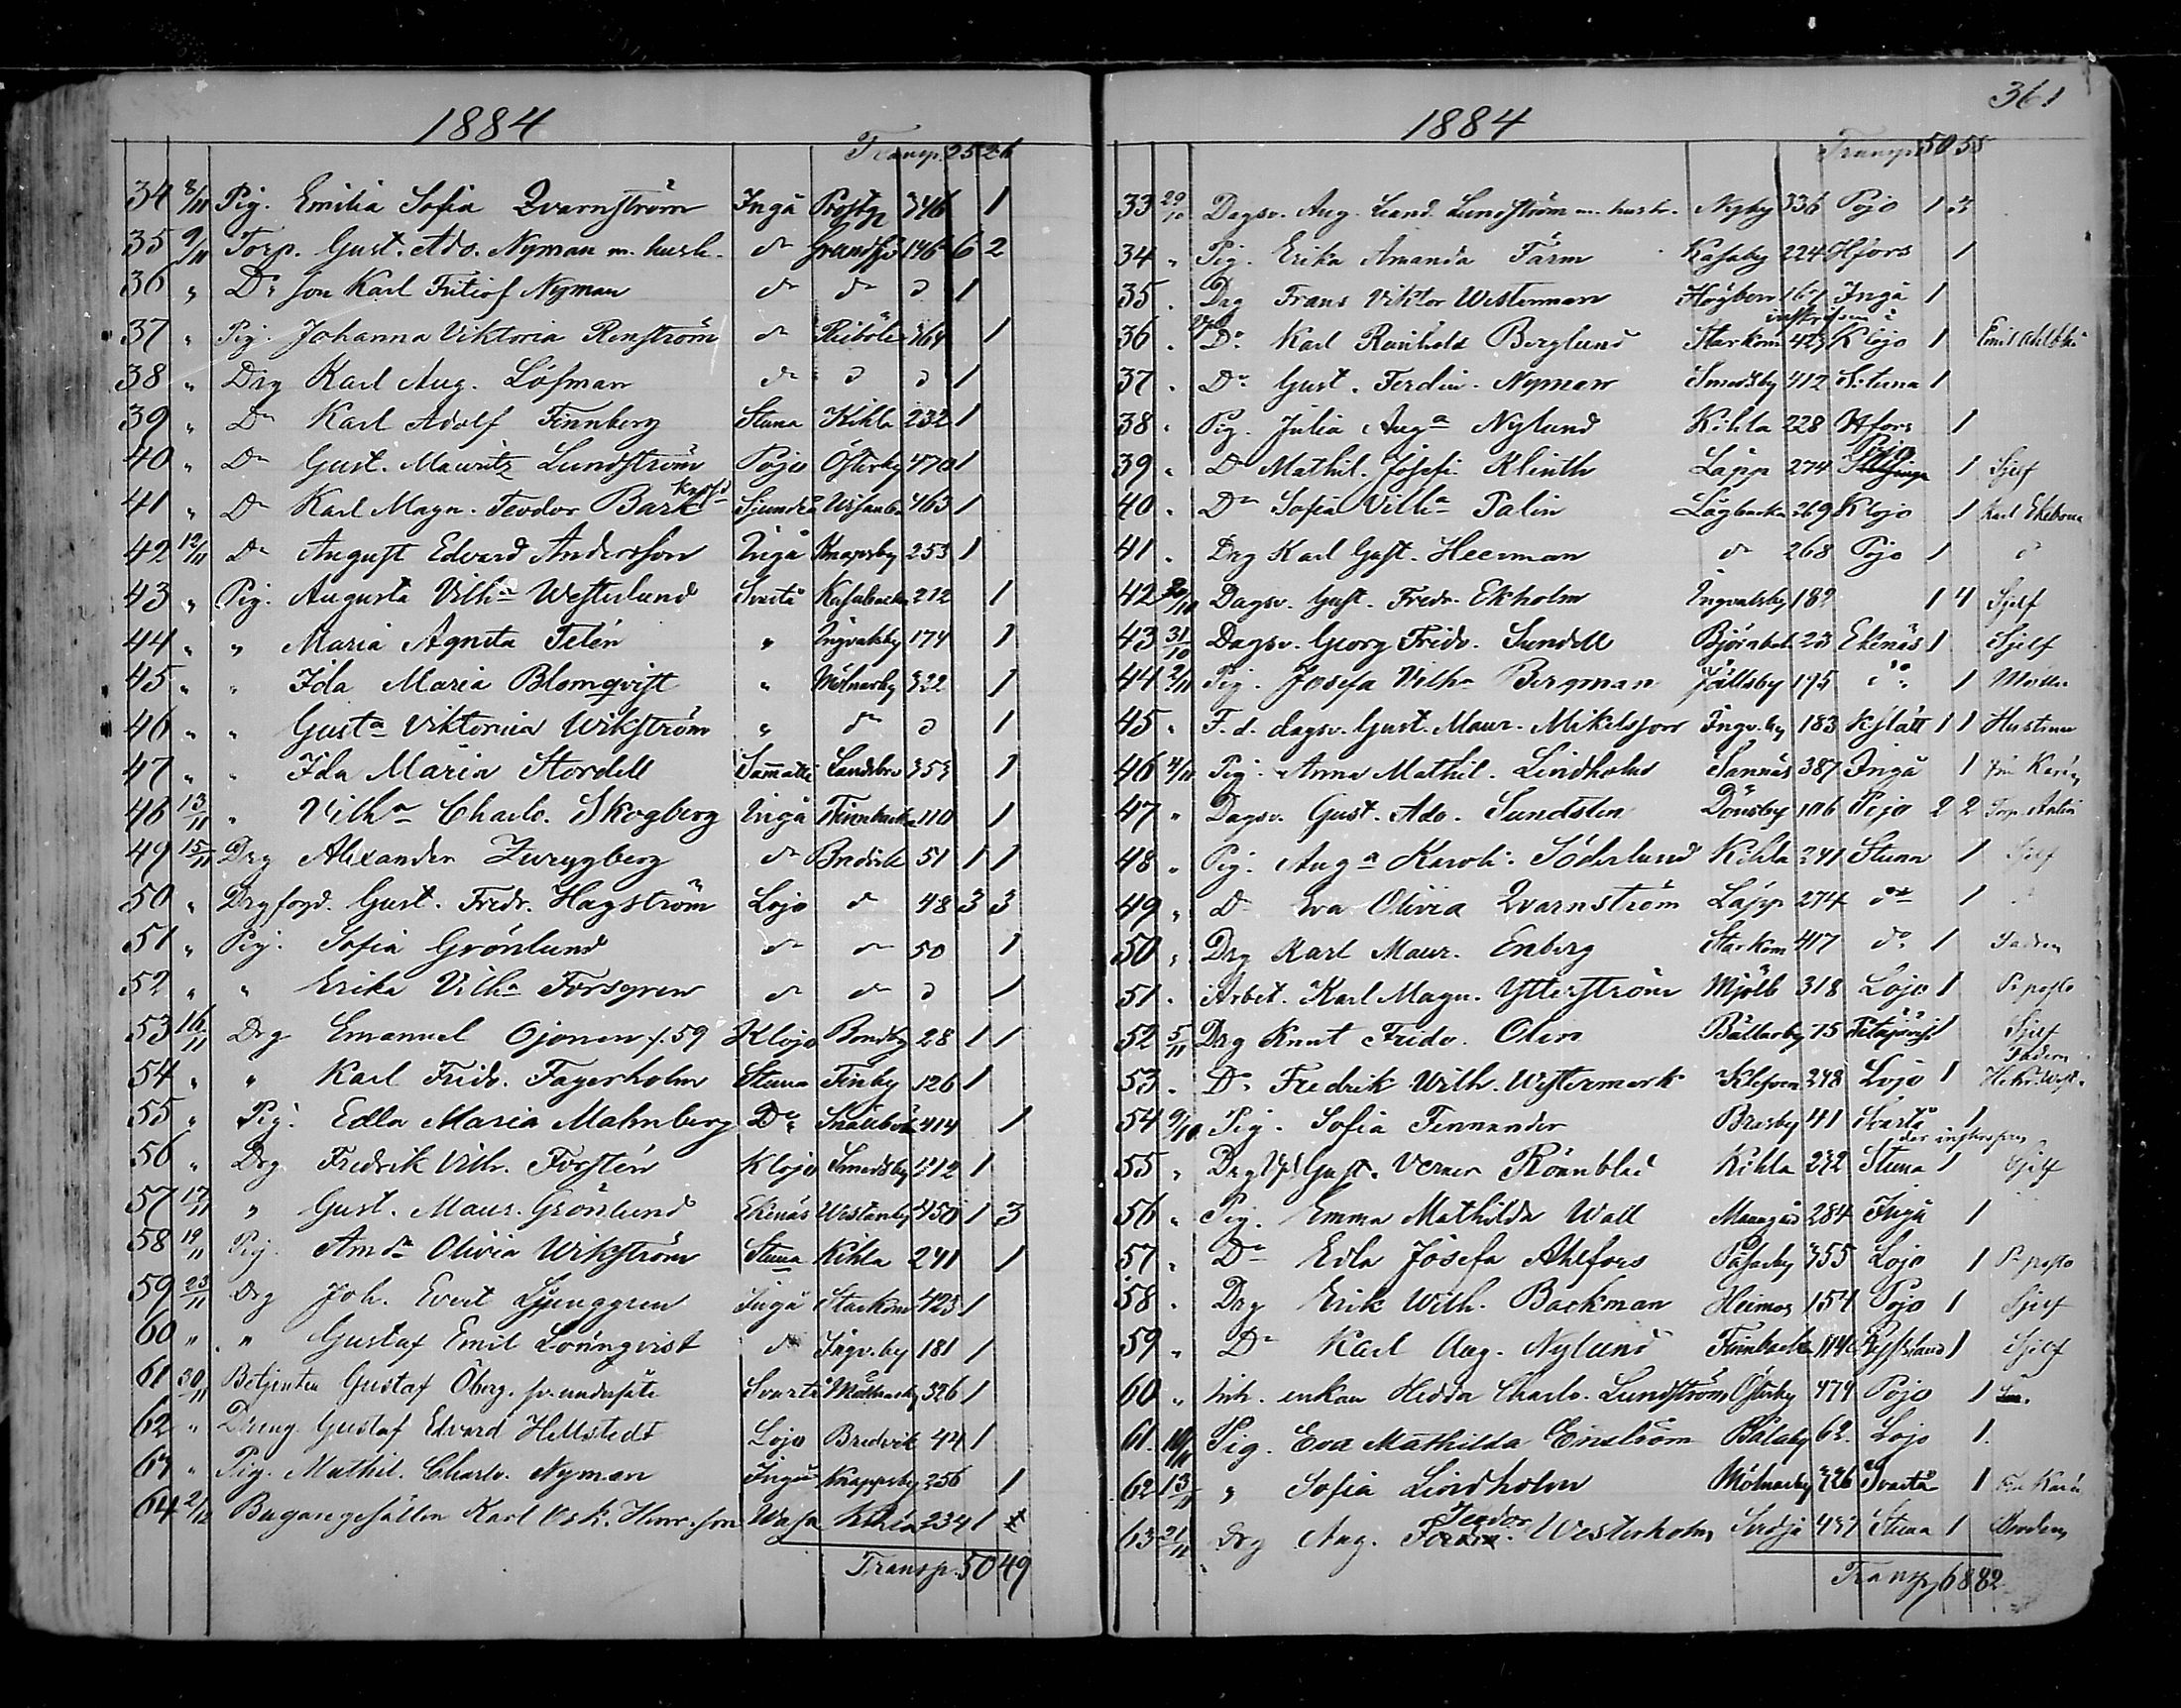 1884
Transp. 25 26
34 8/11 Pig. Emilia Sofia Qvarnström Ingå Prostg 346 1
35 9/11 Torp. Gust. Ado. Nyman m. hush. do 6 2
36 " Do son Karl Fritiof Nyman do do d 1
37 " Pig. Johanna Viktoria Renström do 1
38 " Drg Karl Aug. Löfman do d d 1
39 " Do Karl Adolf Finnberg Stuna Kihla 232 1
40 " Do Gust. Mauritz Lundström Pojo Österby 470 1
41 " Do Karl Magn. Teodor Bark Sjundeå 463 1
42 12/11 Do August Edvard Andersson Ingå Knapsby 253 1
43 " Pig. Augusta Vilh:a Westerlund Svartå Kasabacka 212 1
44 " " Maria Agneta Telén " Ingvalsby 174 1
45 " " Ida Maria Blomqvist " Mölnarby 322 1
46 " " Gust:a Viktoria Wikström " do d 1
47 " " Ida Maria Stordell Sammatti Sandbro 353 1
48 13/11 " Vilh:a Charlo. Skogberg Ingå Finnbacka 110 1
49 15/11 Drg Alexander Zweygberg do Bredvik 51 1 1
50 " Drgfogd. Gust. Fredr. Hagström Lojo do 48 3 3
51 " Pig. Sofia Grönlund do do 50 1
52 " " Erika Vilh:a Forsgren do do d 1
53 16/11 Drg Emanuel Ojonen f. 59 Klojo Bondby 28 1 1
54 " " Karl Fridr. Fagerholm Stuna Finby 126 1
55 " Pig. Edla Maria Malmberg Do Snällböle 414 1
56 " Drg Fredrik Vilh. Forstén Klojo Smedsby 412 1
57 17/11 " Gust. Maur. Grönlund Ekenäs Westanby 450 1 3
58 19/11 Pig. Am:da Olivia Wikström Stuna Kihla 241 1
59 23/11 Drg Joh. Evert Ljunggren Ingå Starkom 423 1
60 " " Gustaf Emil Lönnqvist do Ingv.by 181 1
61 30/11 Betjenten Gustaf Öberg Svartå Mölnarby 326 1
62 " Dreng Gustaf Edvard Hellstedt Lojo Bredvik 44 1
63 " Pig. Mathil. Charlo. Nyman Ingå Knappsby 256 1
64 2/12 Bagaregesällen Karl Osk. Henr.son Wasa Kihla 234 1
Transp. 50 49
361
1884
Transp. 50 55
33 29/10 Dagsv. Aug. Leand. Lundström m. hustr. Nyby 336 Pojo 1 3
34 " Pig. Erika Amanda Färm Kasaby 224 Hfors 1
35 . Drg Frans Viktor Westerman Högben 161 Ingå 1
36 . Do Karl Reinhold Berglund Starkom 423 Klojo 1
37 . Do Gust. Ferdin. Nyman Smedsby 412 S:tuna 1
38 . Pig. Julia Aug:a Nylund Kihla 228 Hfors 1
39 . Do Mathil. Josefi. Klinth Läpp 274 Pojo 1 Sjelf
40 . Do Sofia Vilh:a Palin Lågbacka 269 Klojo 1
41 . Drg Karl Gust. Heerman do 268 Pojo 1 d
42 30/10 Dagsv. Gust. Fredr. Ekholm Ingvalsby 182 1 4 Sjelf
43 31/10 Dagsv. Georg Fridr. Sundell 23 Ekenäs 1 Sjelf
44 2/11 Pig. Josefa Vilh:a Bergman Jällsby 195 do 1 Modr.
45 " F.d. dagsv. Gust. Maur. Mikelsson Ingv.by 183 Kslätt 1 1 Hustrun
46 4/11 Pig. Anna Mathil. Lindholm Sannäs 387 Ingå 1
47 " Dagsv. Gust. Ado. Sundsten Dönsby 106 Pojo 2 2
48 " Pig. Aug:a Karoli. Söderlund Kihla 241 Stuna 1 Sjelf
49 " Do Eva Olivia Qvarnström Läpp 274 do 1
50 " Drg Karl Maur. Enberg Starkom 417 do 1 Fadren
51 . Arbet. Karl Magn. Ytterström Mjölb 318 Lojo 1
52 5/11 Drg Knut Frido. Olin Bällarby 75 1 Sjelf
53 . Do Fredrik Wilh. Westermark 248 Lojo 1 Fadern
54 9/10 Pig. Sofia Fennander Brasby 41 Svartå 1
55 " Drg Gust. Verner Rönnblad Kihla 232 Stuna 1 Sjelf
56 " Pig. Emma Mathilda Wall 284 Ingå 1
57 " Do Edla Josefa Ahlfors Påsarby 355 Lojo 1
58 " Drg Erik Wilh. Backman Heimos 154 Pojo 1 Sjelf
59 " Do Karl Aug. Nylund Finnbacka 114 Ryssland 1 Sjelf
60 " Inh. enkan Hedda Charlo. Lundström Österby 474 Pojo 1
61. 10/11 Pig. Eva Mathilda Enström Bålaby 62. Lojo 1.
62 13/11 " Sofia Lindholm Mölnarby 326 Svartå 1
63 21/11 Drg Aug. Teodor Westerholm 437 Stuna 1
Transp. 68 82